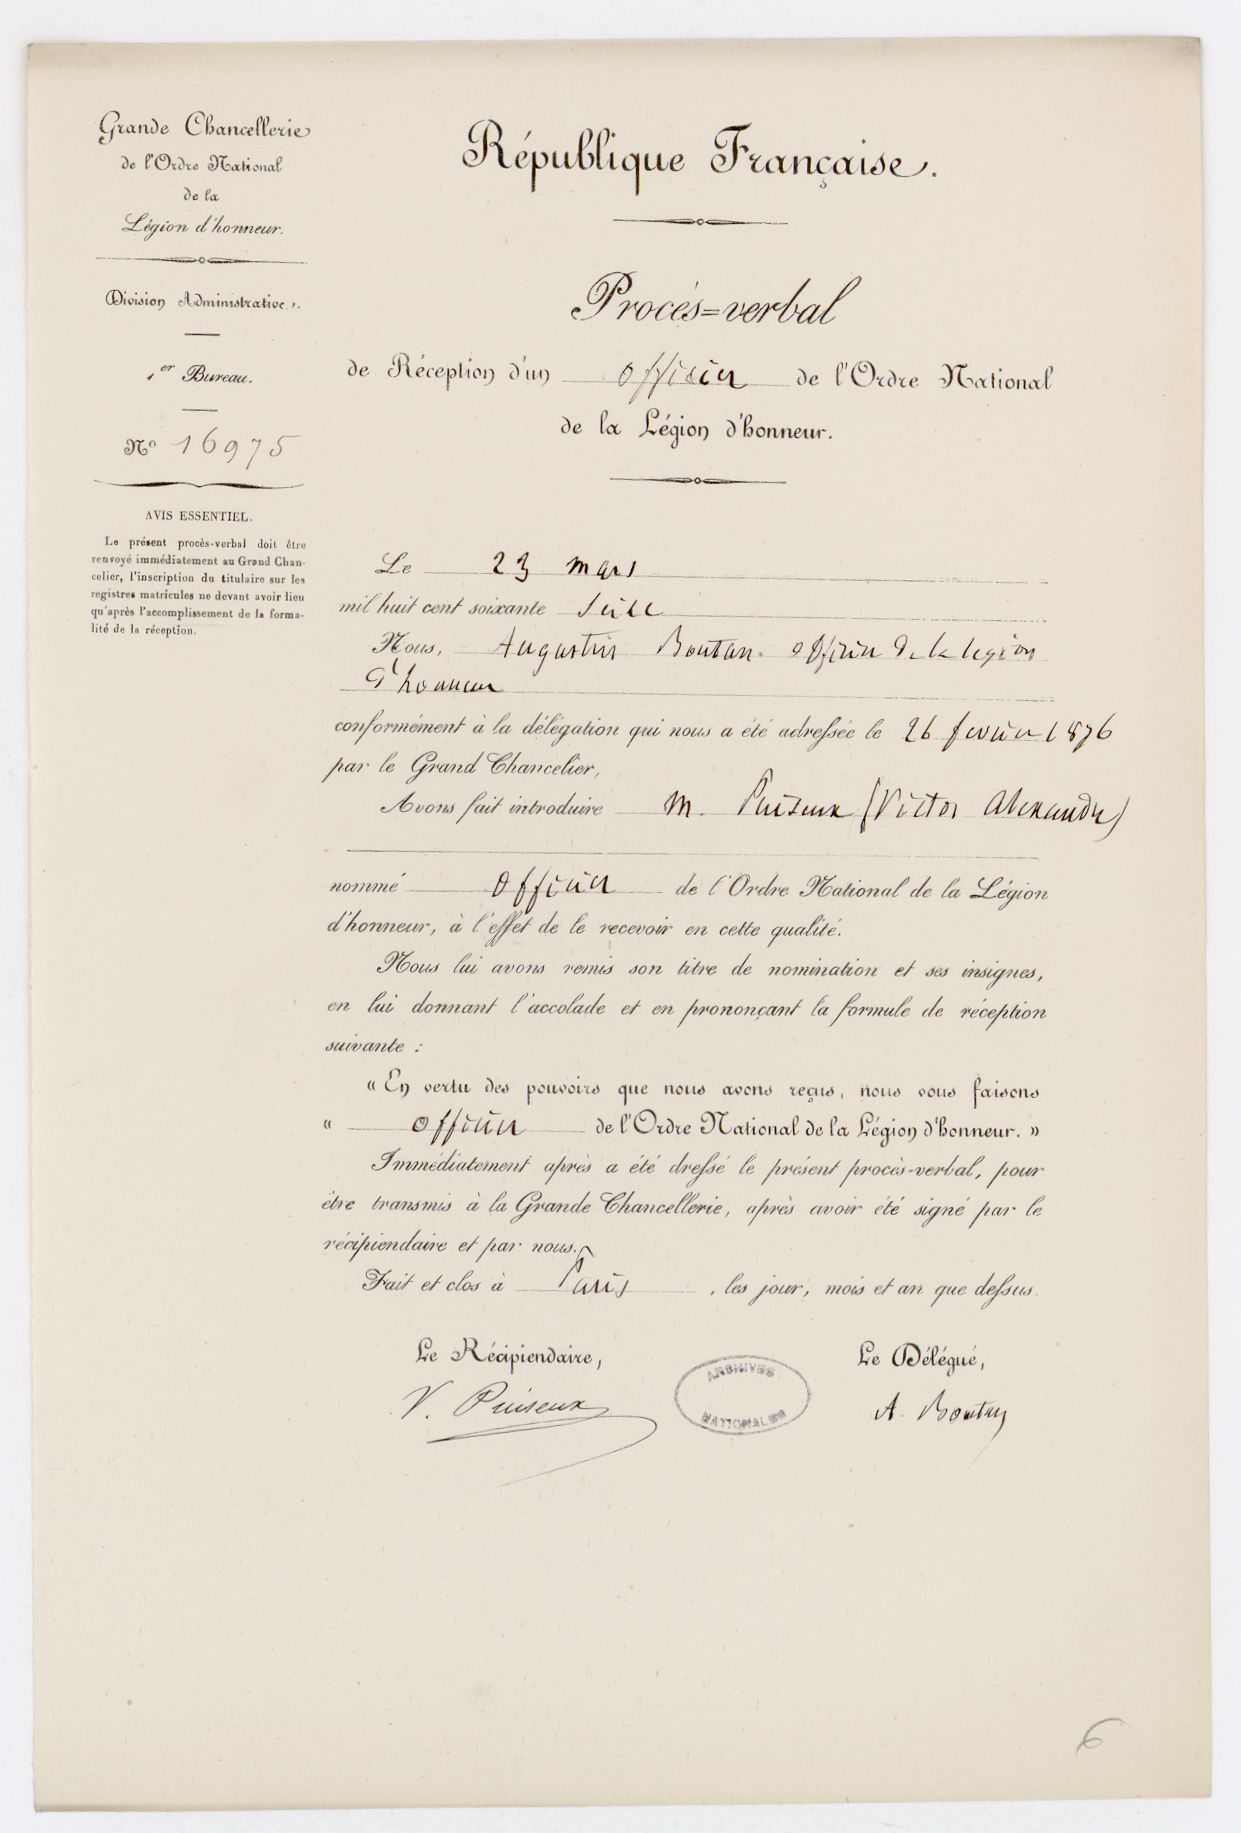 Grande Chancellerie
de l'Ordre National
de la
Légion d'honneur.
Division Administrative.
1er Bureau.
No 16975
AVIS ESSENTIEL.
Le présent procès-verbal doit être
renvoyé immédiatement au Grand Chan-
celier, l'inscription du titulaire sur les
registres matricules ne devant avoir lieu
qu'après l'accomplissement de la forma-
lité de la réception.
République Française.
Procès=verbal
de Réception d'un officier de l'Ordre National
de la Légion d'honneur.
Le 23 mars
mil huit cent soixante seize
Nous, Augustin Boutan officier de la légion
d'honneur
conformément à la délégation qui nous a été adressée le 26 fevrier 1876
par le Grand Chancelier,
Avons fait introduire M. Puiseux (Victor Alexandre)
nommé officier de l'Ordre National de la Légion
d'honneur, à l'effet de le recevoir en cette qualité.
Nous lui avons remis son titre de nomination et ses insignes,
en lui donnant l'accolade et en prononçant la formule de réception
suivante :
« En vertu des pouvoirs que nous avons reçus, nous vous faisons
« officier de l'Ordre National de la Légion d'honneur. »
Immédiatement après a été dressé le présent procès-verbal, pour
être transmis à la Grande Chancellerie, après avoir été signé par le
récipiendaire et par nous.
Fait et clos à Paris, les jour, mois et an que dessus.
Le Récipiendaire,
V. Puiseux
ARCHIVES
NATIONALES
Le Délégué,
A. Boutan
6